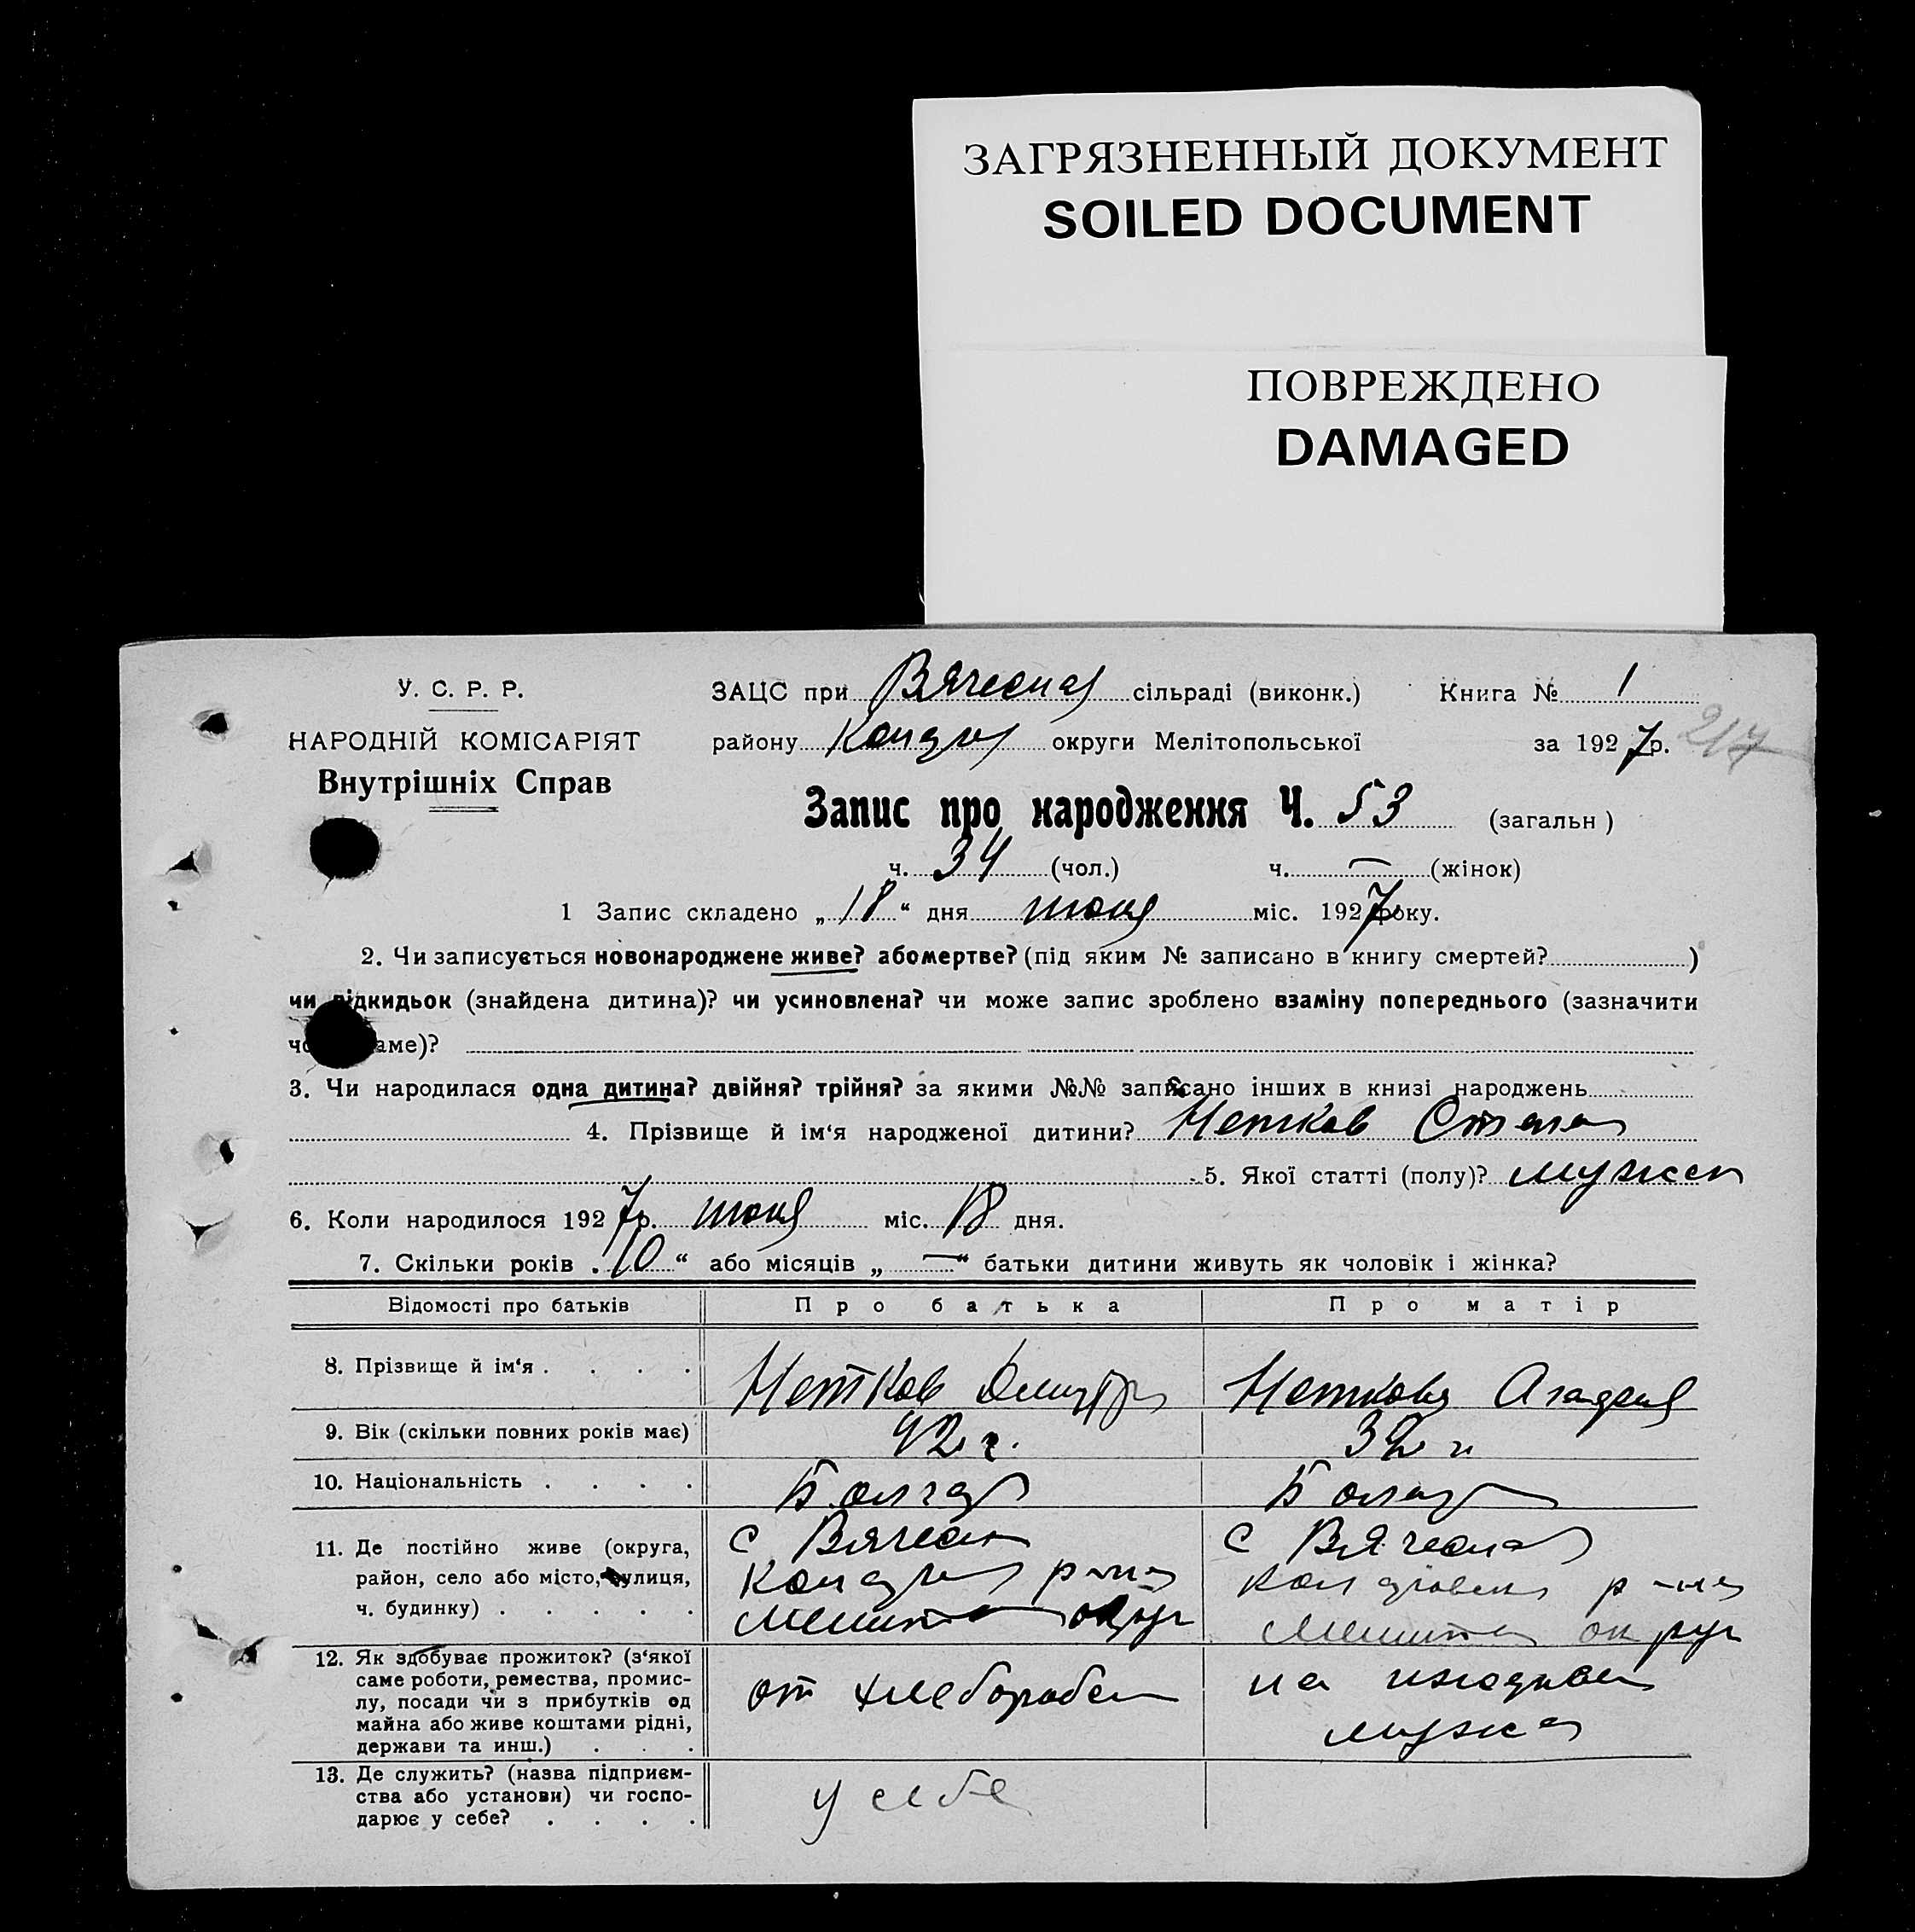 ЗАГРЯЗНЕННЫЙ ДОКУМЕНТ
SOILED DOCUMENT
ПОВРЕЖДЕНО
DAMAGED
У. С. Р. Р.
НАРОДНІЙ КОМІСАРІЯТ
Внутрішніх Справ
ЗАЦС при сільраді (виконк.) Книга № 1
району округи Мелітопольської за 1927р. 217
Запис про народження Ч. 53 (загальн)
ч. 34 (чол.) ч. — (жінок)
1 Запис складено „18“ дня июня міс. 1927 року.
2. Чи записується новонароджене живе? або мертве? (під яким № записано в книгу смертей? )
чи підкидьок (знайдена дитина)? чи усиновлена? чи може запис зроблено взаміну попереднього (зазначити
аме)?
3. Чи народилася одна дитина? двійня? трійня? за якими №№ записано інших в книзі народжень
4. Прізвище й ім‘я народженої дитини? Нетков Степан
5. Якої статті (полу)? мужск
6. Коли народилося 1927р. июня міс. 18 дня.
7. Скільки років „10“ або місяців „—“ батьки дитини живуть як чоловік і жінка?
Відомості про батьків Про батька Про матір
8. Прізвище й ім‘я . . . . Нетков Дмитр Неткова
9. Вік (скільки повних років має) 42 г.
10. Національність . . . . Болгар Болгар
11. Де постійно живе (округа,
район, село або місто, вулиця,
ч. будинку) . . . . .
с
р-на
округ
с
р-на
округ
12. Як здобуває прожиток? (з‘якої
саме роботи, ремества, промис-
лу, посади чи з прибутків од
майна або живе коштами рідні,
держави та инш.) . . .
от хлеборобст
на иждивен
мужа
13. Де служить? (назва підприєм-
ства або установи) чи госпо-
дарює у себе? . . . .
у себе